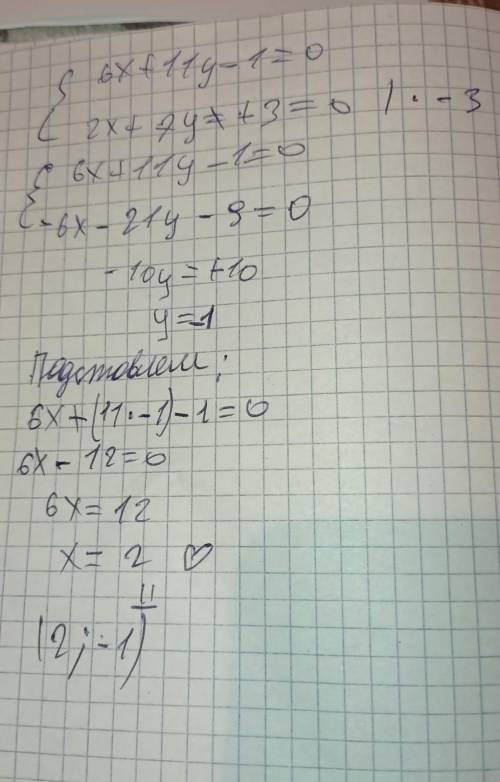 6x+11y-1=0
2x+7y+3=0 | · -3
6x+11y-1=0
-6x-21y-9=0
-10y=+10
y=-1
Подставляем:
6x+(11·-1)-1=0
6x-12=0
6x=12
x=2 ♡
(2;-1)